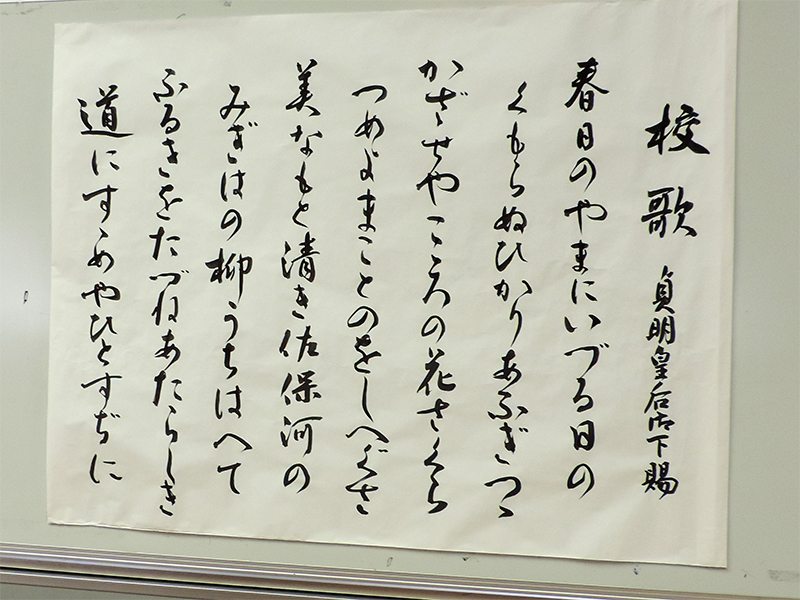 校歌 貞明皇后御下賜
春日のやまにいづる日の
くもらぬひかりあふぎつゝ
かざせやこゝろの花さくら
つめよまことのをしへぐさ
美なもと清き佐保河の
みぎはの柳うちはへて
ふるきをたづねあたらしき
道にすゝめやひとすぢに